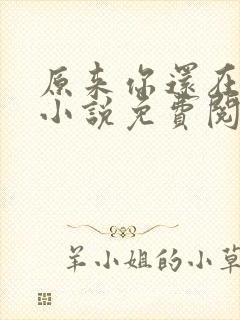 原来你還在
小說免費閱
羊小姐的小草